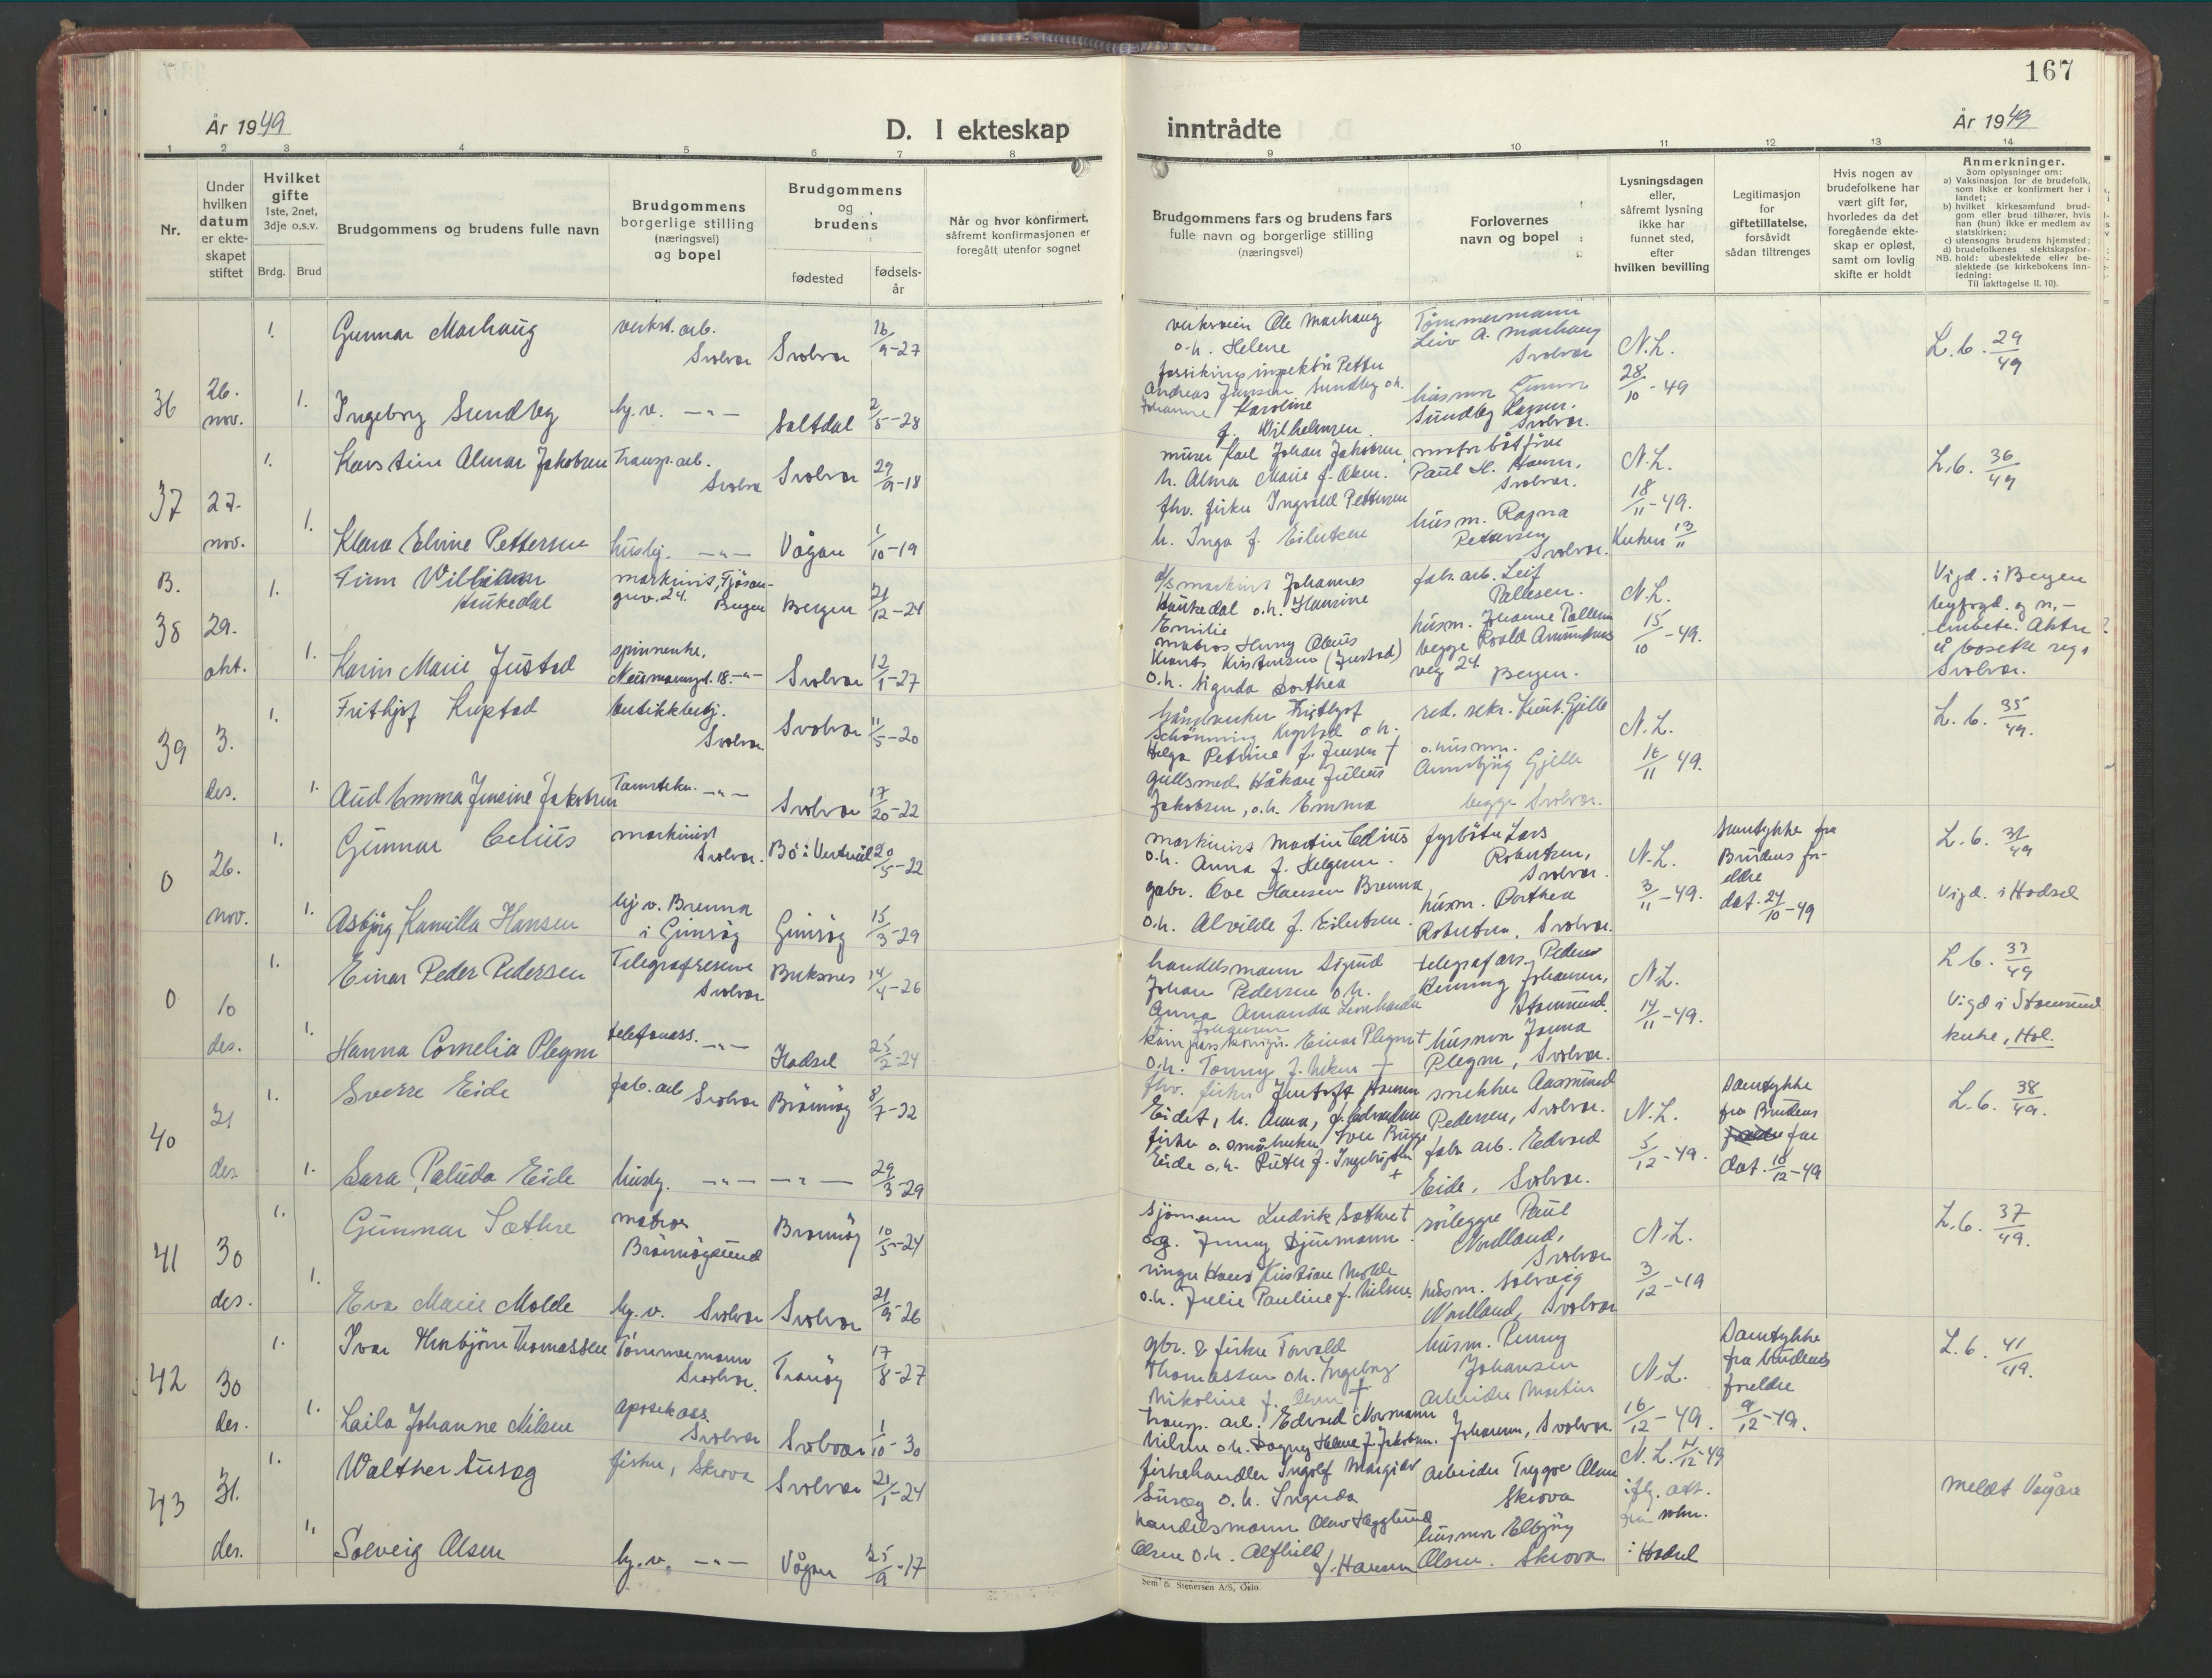 167
År 1949
D. I ekteskap
inntrådte
År 1949
1 2 3 4 5 6 7 8 9 10 11 12 13 14
Nr.
Under hvilken datum er ekteskapet stiftet
Hvilket gifte
1ste, 2net, 3dje o.s.v.
Brdg. Brud
Brudgommens og brudens fulle navn
Brudgommens borgerlige stilling (næringsvei) og bopel
Brudgommens og brudens
fødested
fødsels-år
Når og hvor konfirmert, såfremt konfirmasjonen er foregått utenfor sognet
Brudgommens fars og brudens fars fulle navn og borgerlige stilling (næringsvei)
Forlovernes navn og bopel
Lysningsdagen eller, såfremt lysning ikke har funnet sted, efter hvilken bevilling
Legitimasjon for giftetillatelse, forsåvidt sådan tiltrenges
Hvis nogen av brudefolkene har vært gift før, hvorledes da det foregående ekteskap er opløst, samt om lovlig skifte er holdt
Anmerkninger.
Som oplysninger om:
a) Vaksinasjon for de brudefolk, som ikke er konfirmert her i landet;
b) hvilket kirkesamfund brudgom eller brud tilhører, hvis han (hun) ikke er medlem av statskirken;
c) utensogns brudens hjemsted;
d) brudefolkenes slektskapsforhold: ubeslektede eller beslektede (se kirkebokens innledning:
NB.
Til iakttagelse II. 10).
36
26. nov.
1. Gunnar Marhaug
verkst. arb. Svolvær
Svolvær
16/9-27
Ole Marhaug
o.h. Helene
Tømmermann
Leiv A. Marhaug
Svolvær
N.L.
28/10-49
L.b. 29/49
1. Ingeborg Sundby
hj.v. -"-
Saltdal
2/5-28
Andreas Jensen Sundby o.h.
Johanne Karoline
f. Wilhelmsen
husmor
Sundby
Svolvær.
37
27. nov.
1. Karstein Almar Jakobsen
Transp. arb. Svolvær
Svolvær
29/9-18
murer Karl Johan Jakobsen
h. Alma Marie f. Olsen.
Paul H. Hansen,
Svolvær.
N.L.
18/11-49.
L.b. 36/49
1. Klara Elvine Pettersen
hushj. -"-
Vågan
1/10-19
fhv. fisker Ingvald Pettersen
h. Inga f. Eilertsen
husm. Ragna
Pettersen
Svolvær.
13/11
B.
38
29. okt.
1. Finn William
Haukedal
maskinist, Fjøsan-
grv. 24. Bergen
Bergen
21/12-24
d/s maskinist Johannes
Haukedal o.h. Hansine
Emilie
fabr. arb. Leif
Pallesen.
N.L.
15/10-49.
Vigd. i Bergen
Svolvær.
1. Karin Marie Justad
spinnerske,
Neumannsgt. 18. -"-
Svolvær
12/1-27
matros Henry Obeus
Kristensen (Justad)
o.h. Signda Dorthea
husm. Johanne Pallesen
begge Roald Amundsens
veg 24. Bergen.
39
3. des.
1. Frithjof Krystad
butikkbetj. Svolvær
Svolvær
11/5-20
Frithjof
Schönning Krystad o.h.
Helga Petrine f. Jensen †
red. sekr. Knut Gjelle
o. husmor.
N.L.
16/11 49.
L.b. 35/49.
1. Aud Emma Jensine Jakobsen
Tanntekn. -"-
Svolvær
17/20-22
gullsmed Håkon Julius
Jakobsen, o.h. Emma
Annbjørg Gjelle
begge Svolvær.
0
26. nov.
1. Gunnar Celius
maskinist Svolvær.
20/5-22
maskinist Martin Celius
o.h. Anna f. Helgesen.
fyrbøter Lars
Robertsen,
Svolvær.
N.L.
3/11-49.
Samtykke fra
Brudens for-
eldre
dat. 24/10-49
L.b. 31/49
Vigd. i Hadsel
1. Asbjørg Kamilla Hansen
hj. v. Brenna
i Gimsøy
Gimsøy
15/3-29
gbr. Ove Hansen Brenna
o.h. Alvilde f. Eilertsen.
husm. Dorthea
Robertsen, Svolvær.
0
10 des.
1. Einar Peder Pedersen
Telegrafreserve Svolvær
Buksnes
14/4-26
handelsmann Sigurd
Johan Pedersen o.h.
Anna Amanda Leonharda
Johansen
telegrafass. Peder
Henning Johansen,
Stamsund.
N.L.
14/11-49.
L.b. 33/49
Vigd i Stamsund
kirke, Hol.
1. Hanna Cornelia Plegm
telefonass. -"-
Hadsel
25/2-24
Einar Plegm †
o.h. Tonny f. Nilsen †
husmor Janna
Plegm, Svolvær.
40
21 des.
1. Sverre Eide
fab. arb Svolvær
Brønnøy
8/7-22
fhv. fisker
Eidet, h. Anna, f. Edvardsen
snekker Aasmund
Pedersen, Svolvær.
N.L.
5/12-49.
Samtykke
fra Brudens
far
dat. 10/12-49
L.b. 38/49.
1. Sara Paluda Eide
hushj. -"- -"-
29/3-29
fisker o. småbruker
Eide o.h. Ruth f. Ingebrigtsen
†
fabr. arb. Edvard
Eide, Svolvær.
41
30 des.
1. Gunnar Sæthre
matros
Brønnøysund
Brønnøy
10/5-24
sjømann Ludvik Sæthre †
og. Jenny Djurmann.
rørlegger Paul
Nordland,
Svolvær
N.L.
3/12-49
L.b. 37/49.
1. Eva Marie Molde
hj.v. Svolvær
Svolvær
21/9-26
ringer Hans Kristian Molde
o.h. Julie Pauline f. Nilsen.
husm. Solveig
Nordland, Svolvær
42
30 des.
1. Ivar Thorbjørn Thomassen
Tømmermann
Svolvær.
Tranøy
17/8-27
gbr. & fisker Torvald
Thomassen o.h. Ingeborg
Nikoline f. Olsen †
husm. Penny
Johansen
N.L.
16/12-49.
Samtykke
fra brudens
foreldre
9/12-49.
L.b. 41/49.
1. Laila Johanne Nilsen
apotekass.
Svolvær
Svolvær
1/10-30
transp. arb. Edvard Normann
Nilsen o.h. Dagny Helene f. Jakobsen.
arbeider Martin
Johansen, Svolvær.
43
31. des.
1. Walther Susæg
fisker, Skrova
Svolvær
21/1-24
fiskehandler Ingolf Margido
Susæg o.h. Ingunda
arbeider Trygve Olsen
Skrova
N.L. 14/12-49
iflg. att.
fra
i Hadsel
meldt Vågan
1. Solveig Olsen
hj.v. -"-
Vågan
25/9-17
handelsmann Olav Hegglund
Olsen o.h. Alfhild
f. Hansen
husmor Elbjørg
Olsen. Skrova
Sem & Stenersen A/S, Oslo